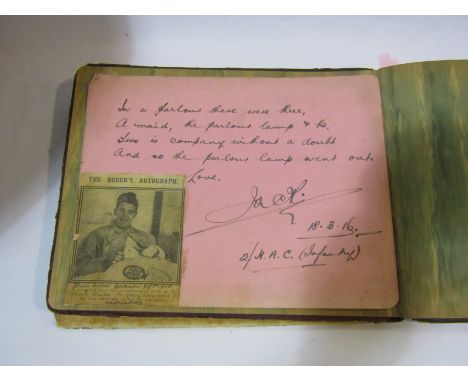 In a parlour there were three,
A maid, the parlour lamp & he.
Two is company without a doubt
And so the parlour lamp went out.
Love.
Jack.
18-3-16.
2/H.A.C. (Infantry)
THE QUEEN'S AUTOGRAPH.